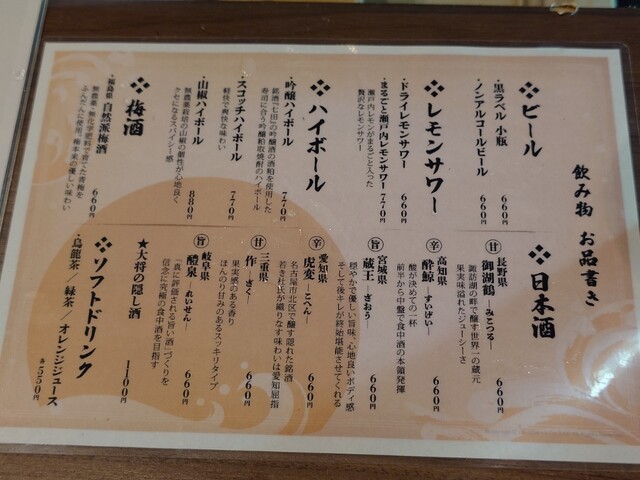 飲み物 お品書き
❖ビール
・黒ラベル 小瓶 660円
・ノンアルコールビール 660円
❖レモンサワー
・ドライレモンサワー 660円
・まるごと瀬戸内レモンサワー 770円
瀬戸内レモンがまるごと入った
贅沢なレモンサワー
❖ハイボール
・吟醸ハイボール 770円
銘酒「七田」の吟醸酒の酒粕を使用した
寿司に合う吟醸粕取焼酎のハイボール
・スコッチハイボール 770円
軽快で爽快な味わい
・山椒ハイボール 880円
無農薬栽培の山椒の個性が心地良く
クセになるスパイシー感
❖梅酒
・福島県 自然派梅酒 660円
無農薬・無化学肥料で育てた青梅を
ふんだんに使用。梅本来の優しい味わい
❖日本酒
甘 長野県
御湖鶴―みこつる― 660円
諏訪湖の畔で醸す世界一の蔵元
果実味溢れたジューシーさ
辛 高知県
酔鯨―すいげい― 660円
酸が決めての一杯
前半から中盤で食中酒の本領発揮
旨 宮城県
蔵王―ざおう― 660円
穏やかで優しい旨味、心地良いボディ感
そして後キレが終始堪能させてくれる
辛 愛知県
虎変―こへん― 660円
名古屋市北区で醸す隠れた銘酒
若き杜氏が織りなす味わいは愛知屈指
甘 三重県
作―ざく― 660円
果実感のある香り
ほんのり甘みのあるスッキリタイプ
旨 岐阜県
醴泉―れいせん― 660円
「真に評価される旨い酒」づくりを
信念に究極の食中酒を目指す
★大将の隠し酒 1100円
❖ソフトドリンク
・烏龍茶／緑茶／オレンジジュース
各550円